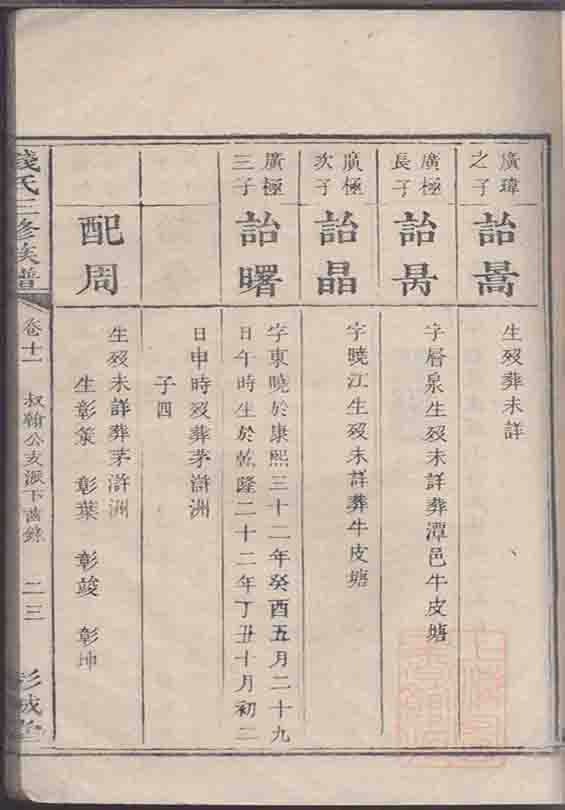 廣瑋之子
詒暠
生歿葬未詳
廣極長子
詒昺
字層泉生歿未詳葬潭邑牛皮塘
廣極次子
詒晶
字曉江生歿未詳葬牛皮塘
廣極三子
詒曙
字東曉於康熙三十二年癸酉五月二十九
日午時生於乾隆二十二年丁丑十月初二
日申時歿葬茅滸洲
子四
配周
生歿未詳葬茅滸洲
生彰策 彰葉 彰竣 彰坤
錢氏三修族譜
卷十一
叔翰公支派下齒錄
二三
彭城堂